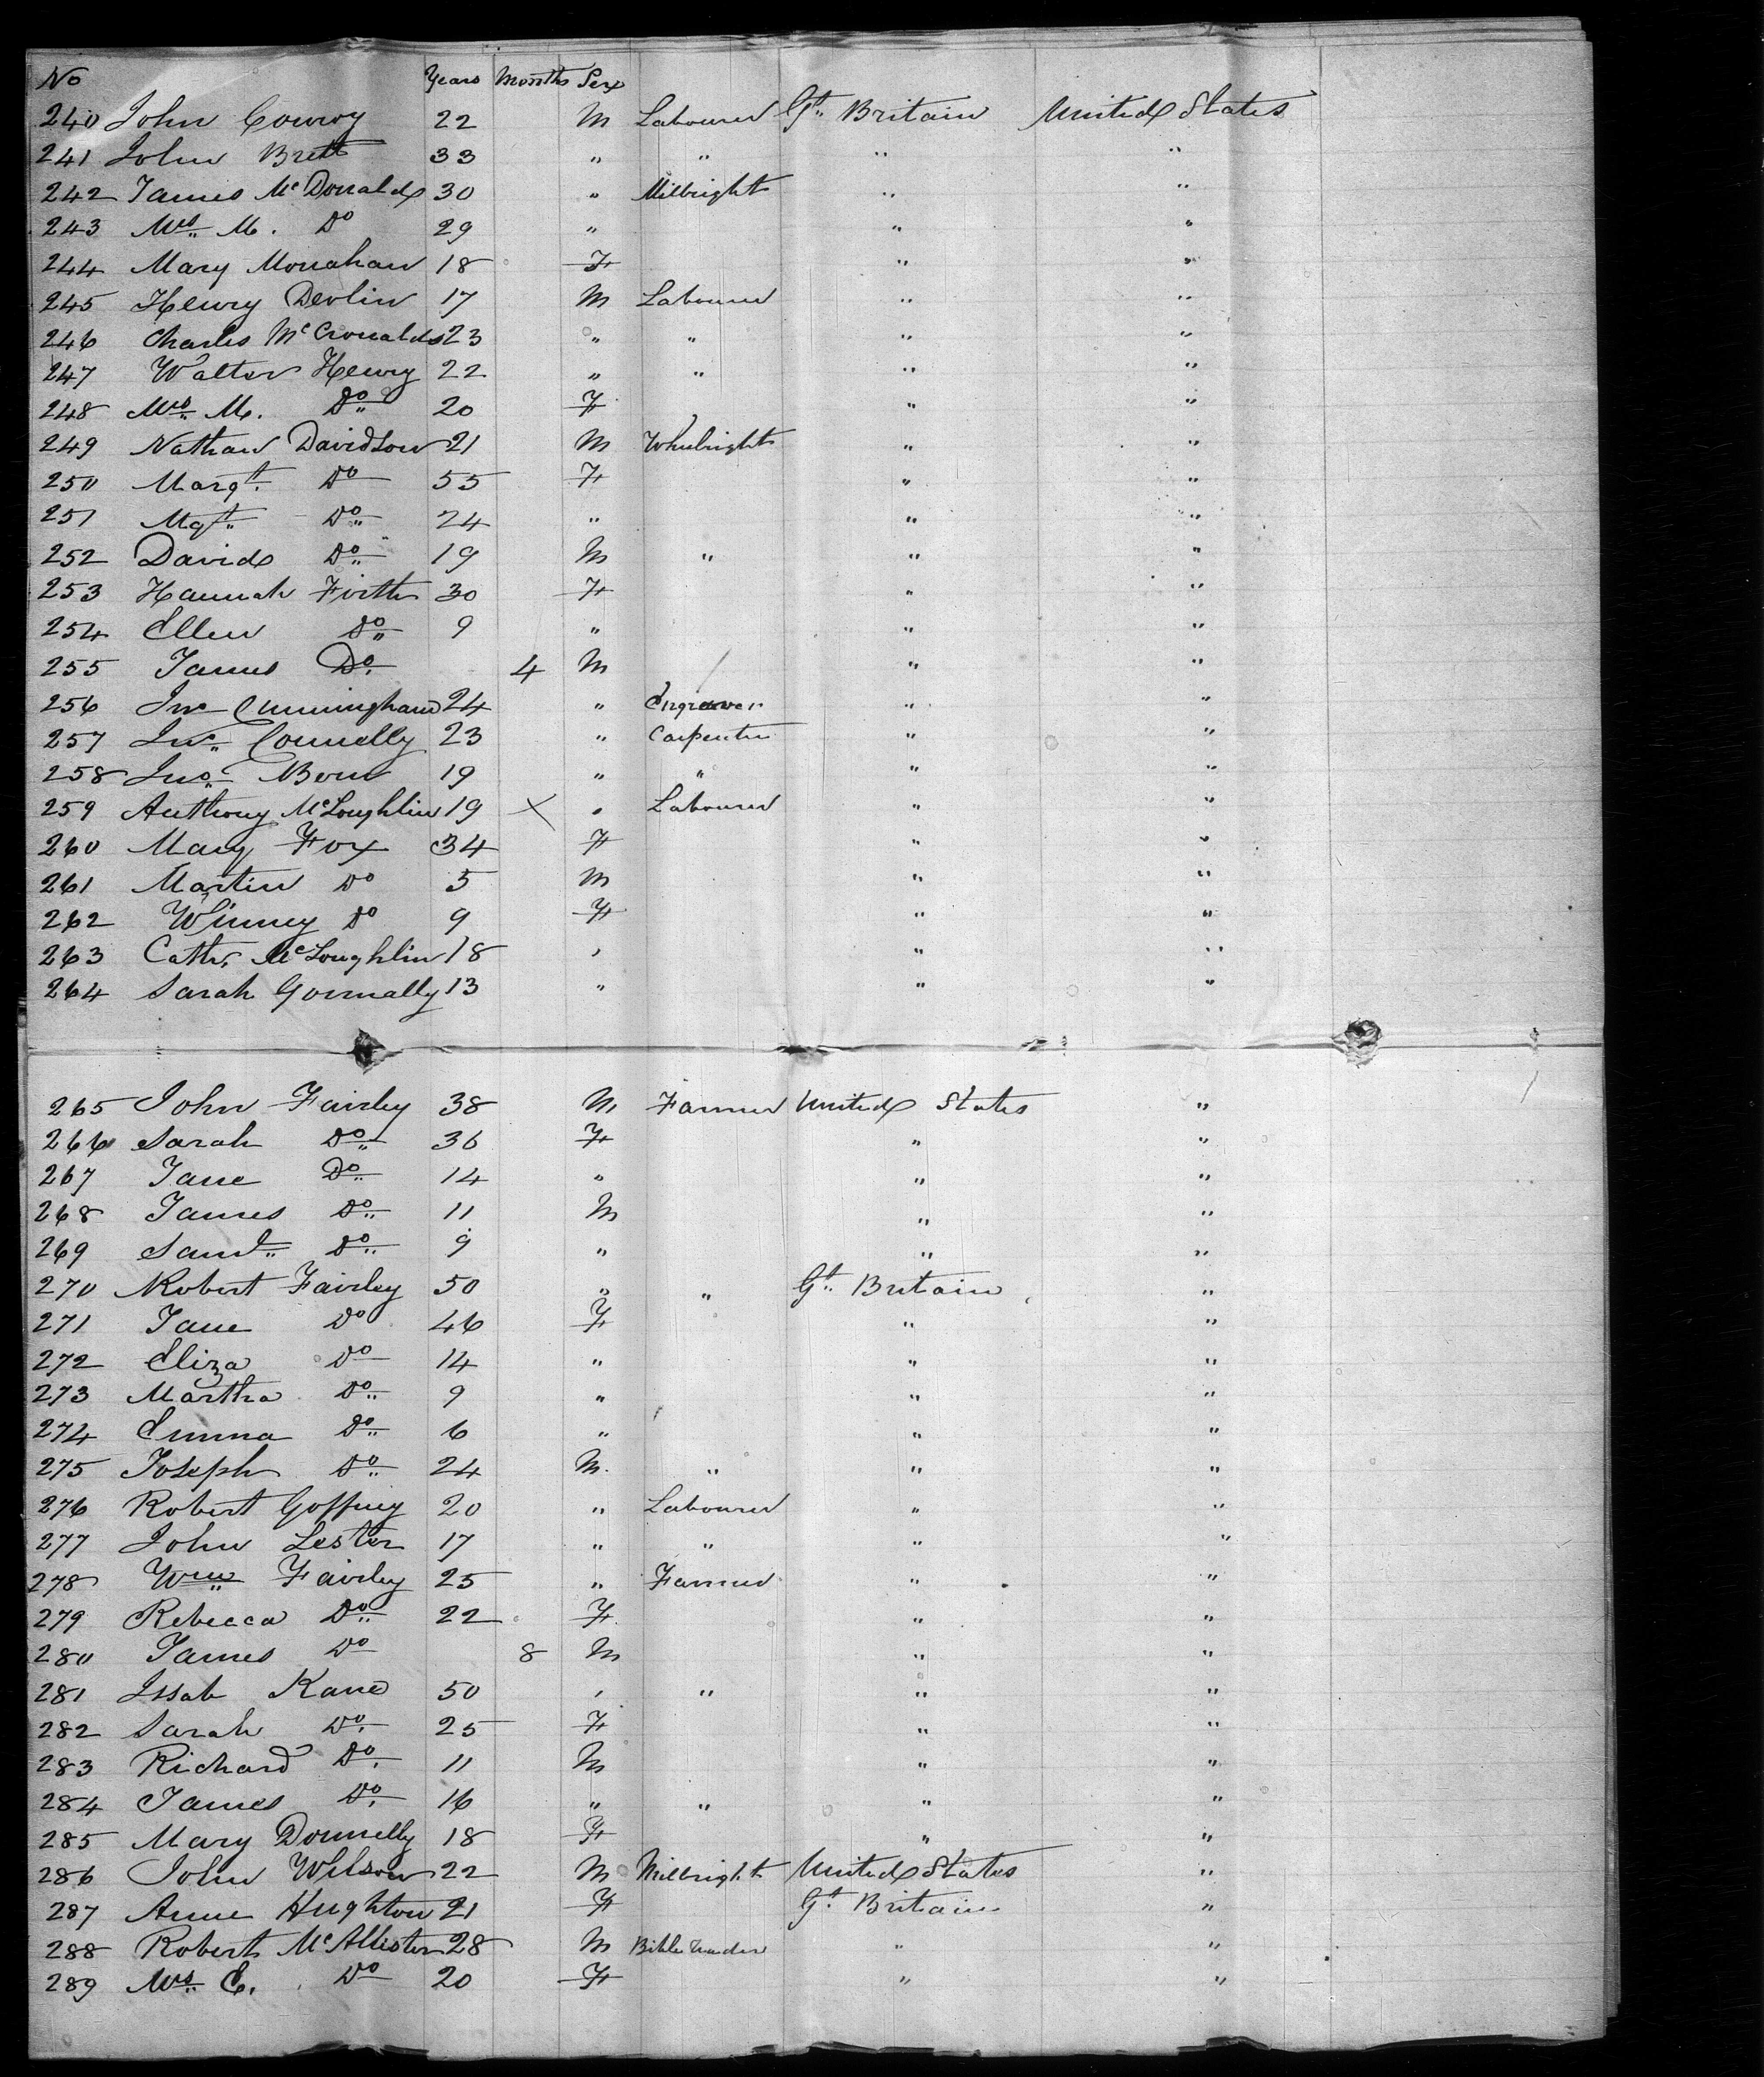 No Years Months Sex
240 John Conroy 22 M Labourer Gt. Britain United States
241 John Brett 33 " " " "
242 James McDonald 30 " Milbright " "
243 Mrs M. Do 29 " " "
244 Mary Monahan 18 F " "
245 Henry Devlin 17 M Labourer " "
246 Charles McCronalds 23 " " " "
247 Walter Henry 22 " " " "
248 Mrs M. Do 20 F " "
249 Nathan Davidson 21 M Whelright " "
250 Margt. Do 55 F " "
251 Mgt. Do 24 " " "
252 David Do 19 M " " "
253 Hannah Firth 30 F " "
254 Ellen Do 9 " " "
255 James Do. 4 M " "
256 Jno Cunningham 24 " Engraver " "
257 Jno. Connelly 23 " Carpenter " "
258 Jno. Born 19 " " " "
259 Anthony McLoughlin 19 X " Labourer " "
260 Mary Fox 34 F " "
261 Martin Do 5 M " "
262 Winney Do 9 F " "
263 Cath. McLoughlin 18 " " "
264 Sarah Gonnally 13 " " "
265 John Fairley 38 M Farmer United States "
266 Sarah Do 36 F " "
267 Jane Do 14 " " "
268 James Do 11 M " "
269 Saml. Do 9 " " "
270 Robert Fairley 50 " " Gt. Britain "
271 Jane Do 46 F " "
272 Eliza Do 14 " " "
273 Martha Do 9 " " "
274 Emma Do 6 " " "
275 Joseph Do 24 M. " " "
276 Robert Goffney 20 " Labourer " "
277 John Lester 17 " " " "
278 Wm Fairley 25 " Farmer " "
279 Rebecca Do 22 F " "
280 James Do 8 M " "
281 Issab Kane 50 " " " "
282 Sarah Do. 25 F " "
283 Richard Do. 11 M " "
284 James Do. 16 " " " "
285 Mary Donnelly 18 F " "
286 John Wilson 22 M Milbright United States "
287 Anne Hughton 21 F Gt. Britain "
288 Robert McAllister 28 M Bible " "
289 Mrs E. Do 20 F " "